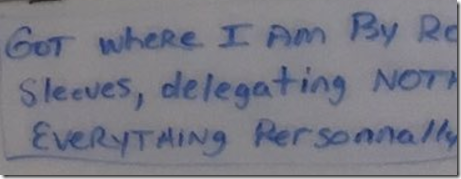 GOT where I Am By Ro
Sleeves, delegating NOTH
EVERYTHING Personnally